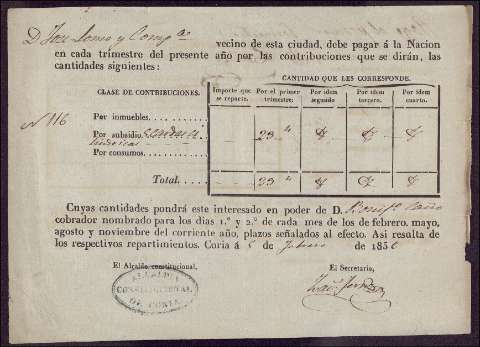 D. José Lomo y Comp.ª vecino de esta ciudad, debe pagar á la Nacion
en cada trimestre del presente año por las contribuciones que se dirán, las
cantidades siguientes:
CANTIDAD QUE LES CORRESPONDE.
CLASE DE CONTRIBUCIONES. Importe que se reparte. Por el primer trimestre: Por idem segundo Por idem tercero. Por idem cuarto.
Nº 116
Por inmuebles.
Por subsidio 23 "
Por consumos.
Total. 23 "
Cuyas cantidades pondrá este interesado en poder de D.
cobrador nombrado para los dias 1.º y 2.º de cada mes de los de febrero, mayo,
agosto y noviembre del corriente año, plazos señalados al efecto. Asi resulta de
los respectivos repartimientos. Coria á 5 de Febrero de 1850
El Alcalde constitucional, El Secretario,
ALCALDIA
CONSTITUCIONAL
DE CORIA